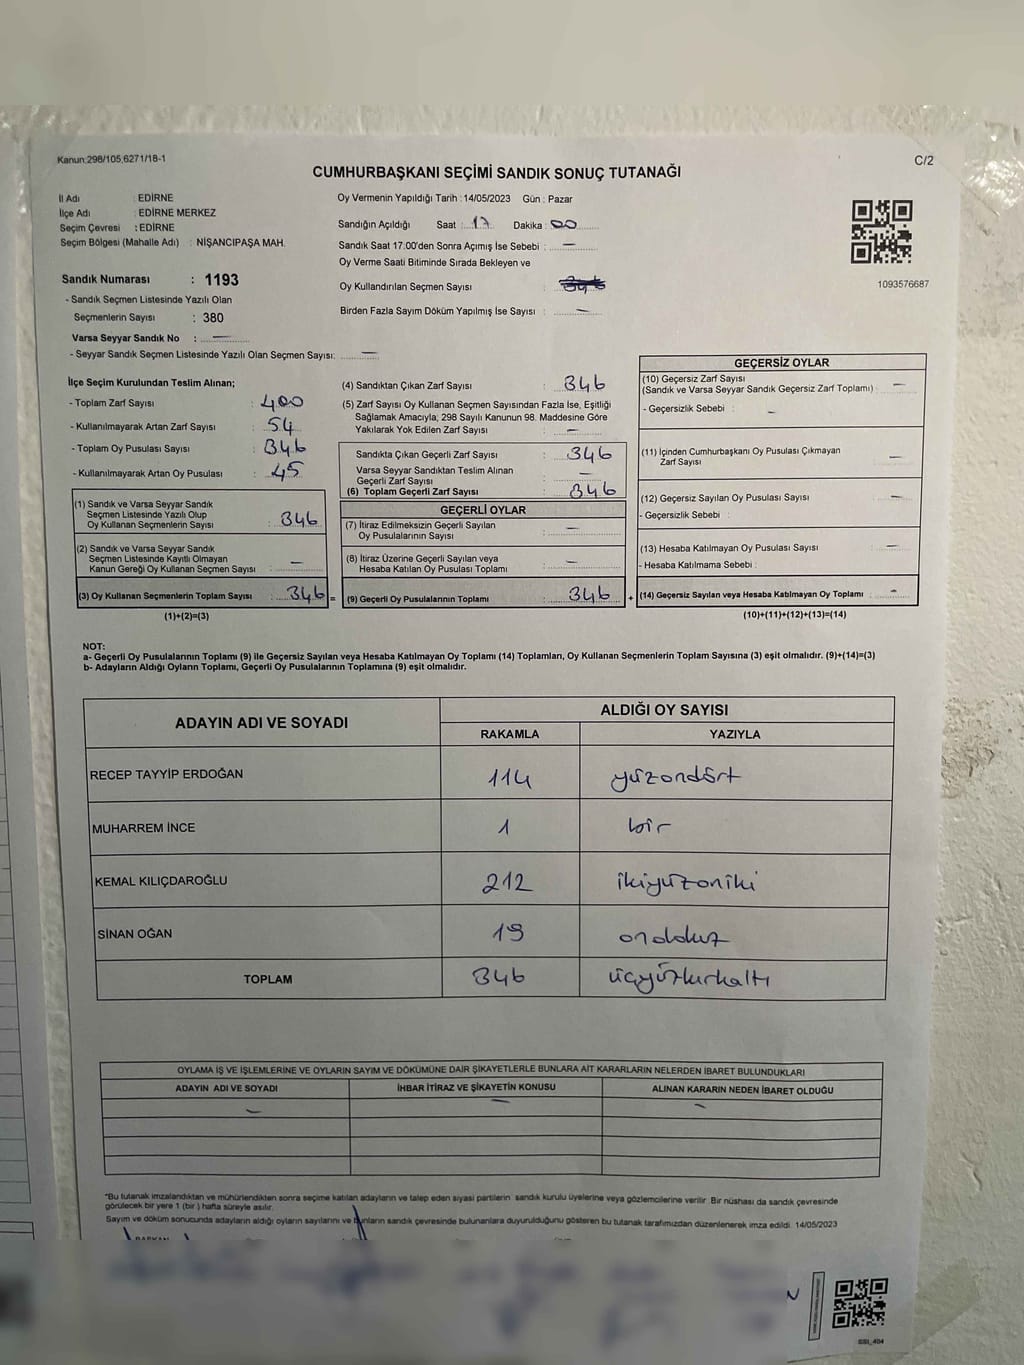 Kanun:298/105,6271/18-1
C/2
CUMHURBAŞKANI SEÇİMİ SANDIK SONUÇ TUTANAĞI
İl Adı : EDİRNE
İlçe Adı : EDİRNE MERKEZ
Seçim Çevresi : EDİRNE
Seçim Bölgesi (Mahalle Adı) : NİŞANCIPAŞA MAH.
Sandık Numarası : 1193
- Sandık Seçmen Listesinde Yazılı Olan
Seçmenlerin Sayısı : 380
Varsa Seyyar Sandık No : —
- Seyyar Sandık Seçmen Listesinde Yazılı Olan Seçmen Sayısı: —
Oy Vermenin Yapıldığı Tarih : 14/05/2023 Gün : Pazar
Sandığın Açıldığı Saat : 17 Dakika : 00
Sandık Saat 17:00'den Sonra Açımış İse Sebebi : —
Oy Verme Saati Bitiminde Sırada Bekleyen ve
Oy Kullandırılan Seçmen Sayısı :
Birden Fazla Sayım Döküm Yapılmış İse Sayısı : —
1093576687
İlçe Seçim Kurulundan Teslim Alınan;
- Toplam Zarf Sayısı : 400
- Kullanılmayarak Artan Zarf Sayısı : 54
- Toplam Oy Pusulası Sayısı : 346
- Kullanılmayarak Artan Oy Pusulası : 45
(1) Sandık ve Varsa Seyyar Sandık
Seçmen Listesinde Yazılı Olup
Oy Kullanan Seçmenlerin Sayısı : 346
(2) Sandık ve Varsa Seyyar Sandık
Seçmen Listesinde Kayıtlı Olmayan
Kanun Gereği Oy Kullanan Seçmen Sayısı : —
(3) Oy Kullanan Seçmenlerin Toplam Sayısı : 346 =
(1)+(2)=(3)
(4) Sandıktan Çıkan Zarf Sayısı : 346
(5) Zarf Sayısı Oy Kullanan Seçmen Sayısından Fazla İse, Eşitliği
Sağlamak Amacıyla; 298 Sayılı Kanunun 98. Maddesine Göre
Yakılarak Yok Edilen Zarf Sayısı : —
Sandıkta Çıkan Geçerli Zarf Sayısı : 346
Varsa Seyyar Sandıktan Teslim Alınan
Geçerli Zarf Sayısı : —
(6) Toplam Geçerli Zarf Sayısı : 346
GEÇERLİ OYLAR
(7) İtiraz Edilmeksizin Geçerli Sayılan
Oy Pusulalarının Sayısı : —
(8) İtiraz Üzerine Geçerli Sayılan veya
Hesaba Katılan Oy Pusulası Toplamı : —
(9) Geçerli Oy Pusulalarının Toplamı : 346 +
GEÇERSİZ OYLAR
(10) Geçersiz Zarf Sayısı
(Sandık ve Varsa Seyyar Sandık Geçersiz Zarf Toplamı) : —
- Geçersizlik Sebebi : —
(11) İçinden Cumhurbaşkanı Oy Pusulası Çıkmayan
Zarf Sayısı —
(12) Geçersiz Sayılan Oy Pusulası Sayısı : —
- Geçersizlik Sebebi :
(13) Hesaba Katılmayan Oy Pusulası Sayısı : —
- Hesaba Katılmama Sebebi :
(14) Geçersiz Sayılan veya Hesaba Katılmayan Oy Toplamı : —
(10)+(11)+(12)+(13)=(14)
NOT:
a- Geçerli Oy Pusulalarının Toplamı (9) ile Geçersiz Sayılan veya Hesaba Katılmayan Oy Toplamı (14) Toplamları, Oy Kullanan Seçmenlerin Toplam Sayısına (3) eşit olmalıdır. (9)+(14)=(3)
b- Adayların Aldığı Oyların Toplamı, Geçerli Oy Pusulalarının Toplamına (9) eşit olmalıdır.
ADAYIN ADI VE SOYADI ALDIĞI OY SAYISI
RAKAMLA YAZIYLA
RECEP TAYYİP ERDOĞAN 114 yüzondört
MUHARREM İNCE 1 bir
KEMAL KILIÇDAROĞLU 212 ikiyüzoniki
SİNAN OĞAN 19 ondokuz
TOPLAM 346 üçyüzkırkaltı
OYLAMA İŞ VE İŞLEMLERİNE VE OYLARIN SAYIM VE DÖKÜMÜNE DAİR ŞİKAYETLERLE BUNLARA AİT KARARLARIN NELERDEN İBARET BULUNDUKLARI
ADAYIN ADI VE SOYADI İHBAR İTİRAZ VE ŞİKAYETİN KONUSU ALINAN KARARIN NEDEN İBARET OLDUĞU
— — —
"Bu tutanak imzalandıktan ve mühürlendikten sonra seçime katılan adayların ve talep eden siyasi partilerin sandık kurulu üyelerine veya gözlemcilerine verilir. Bir nüshası da sandık çevresinde
görülecek bir yere 1 (bir) hafta süreyle asılır.
Sayım ve döküm sonucunda adayların aldığı oyların sayılarını ve bunların sandık çevresinde bulunanlara duyurulduğunu gösteren bu tutanak tarafımızdan düzenlenerek imza edildi. 14/05/2023
BAŞKAN